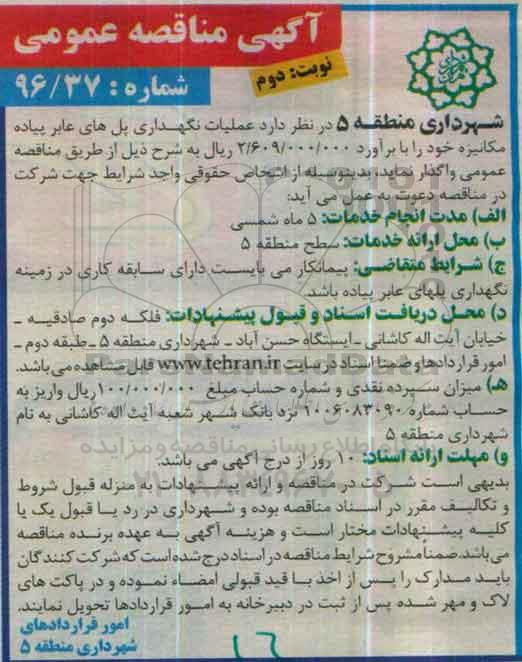 آگهی مناقصه عمومی
شماره: ۹۶/۳۷
نوبت: دوم
شهرداری منطقه ۵ در نظر دارد عملیات نگهداری پل های عابر پیاده
مکانیزه خود را با برآورد ۲/۶۰۹/۰۰۰/۰۰۰ ریال به شرح ذیل از طریق مناقصه
عمومی واگذار نماید، بدینوسیله از اشخاص حقوقی واجد شرایط جهت شرکت
در مناقصه دعوت به عمل می آید:
الف) مدت انجام خدمات: ۵ ماه شمسی
ب) محل ارائه خدمات: سطح منطقه ۵
ج) شرایط متقاضی: پیمانکار می بایست دارای سابقه کاری در زمینه
نگهداری پلهای عابر پیاده باشد.
د) محل دریافت اسناد و قبول پیشنهادات: فلکه دوم صادقیه ـ
خیابان آیت اله کاشانی ـ ایستگاه حسن آباد ـ شهرداری منطقه ۵ ـ طبقه دوم ـ
امور قراردادها و ضمنا اسناد در سایت www.tehran.ir قابل مشاهده می باشد.
هـ) میزان سپرده نقدی و شماره حساب مبلغ ۱۰۰/۰۰۰/۰۰۰ ریال واریز به
حساب شماره ۱۰۰۶۰۸۳۰۹۰ نزد بانک شهر شعبه آیت اله کاشانی به نام
شهرداری منطقه ۵
و) مهلت ارائه اسناد: ۱۰ روز از درج آگهی می باشد.
بدیهی است شرکت در مناقصه و ارائه پیشنهادات به منزله قبول شروط
و تکالیف مقرر در اسناد مناقصه بوده و شهرداری در رد یا قبول یک یا
کلیه پیشنهادات مختار است و هزینه آگهی به عهده برنده مناقصه
می باشد. ضمنا مشروح شرایط مناقصه در اسناد درج شده است که شرکت کنندگان
باید مدارک را پس از اخذ با قید قبولی امضاء نموده و در پاکت های
لاک و مهر شده پس از ثبت در دبیرخانه به امور قراردادها تحویل نمایند.
امور قراردادهای
شهرداری منطقه ۵
۱۶